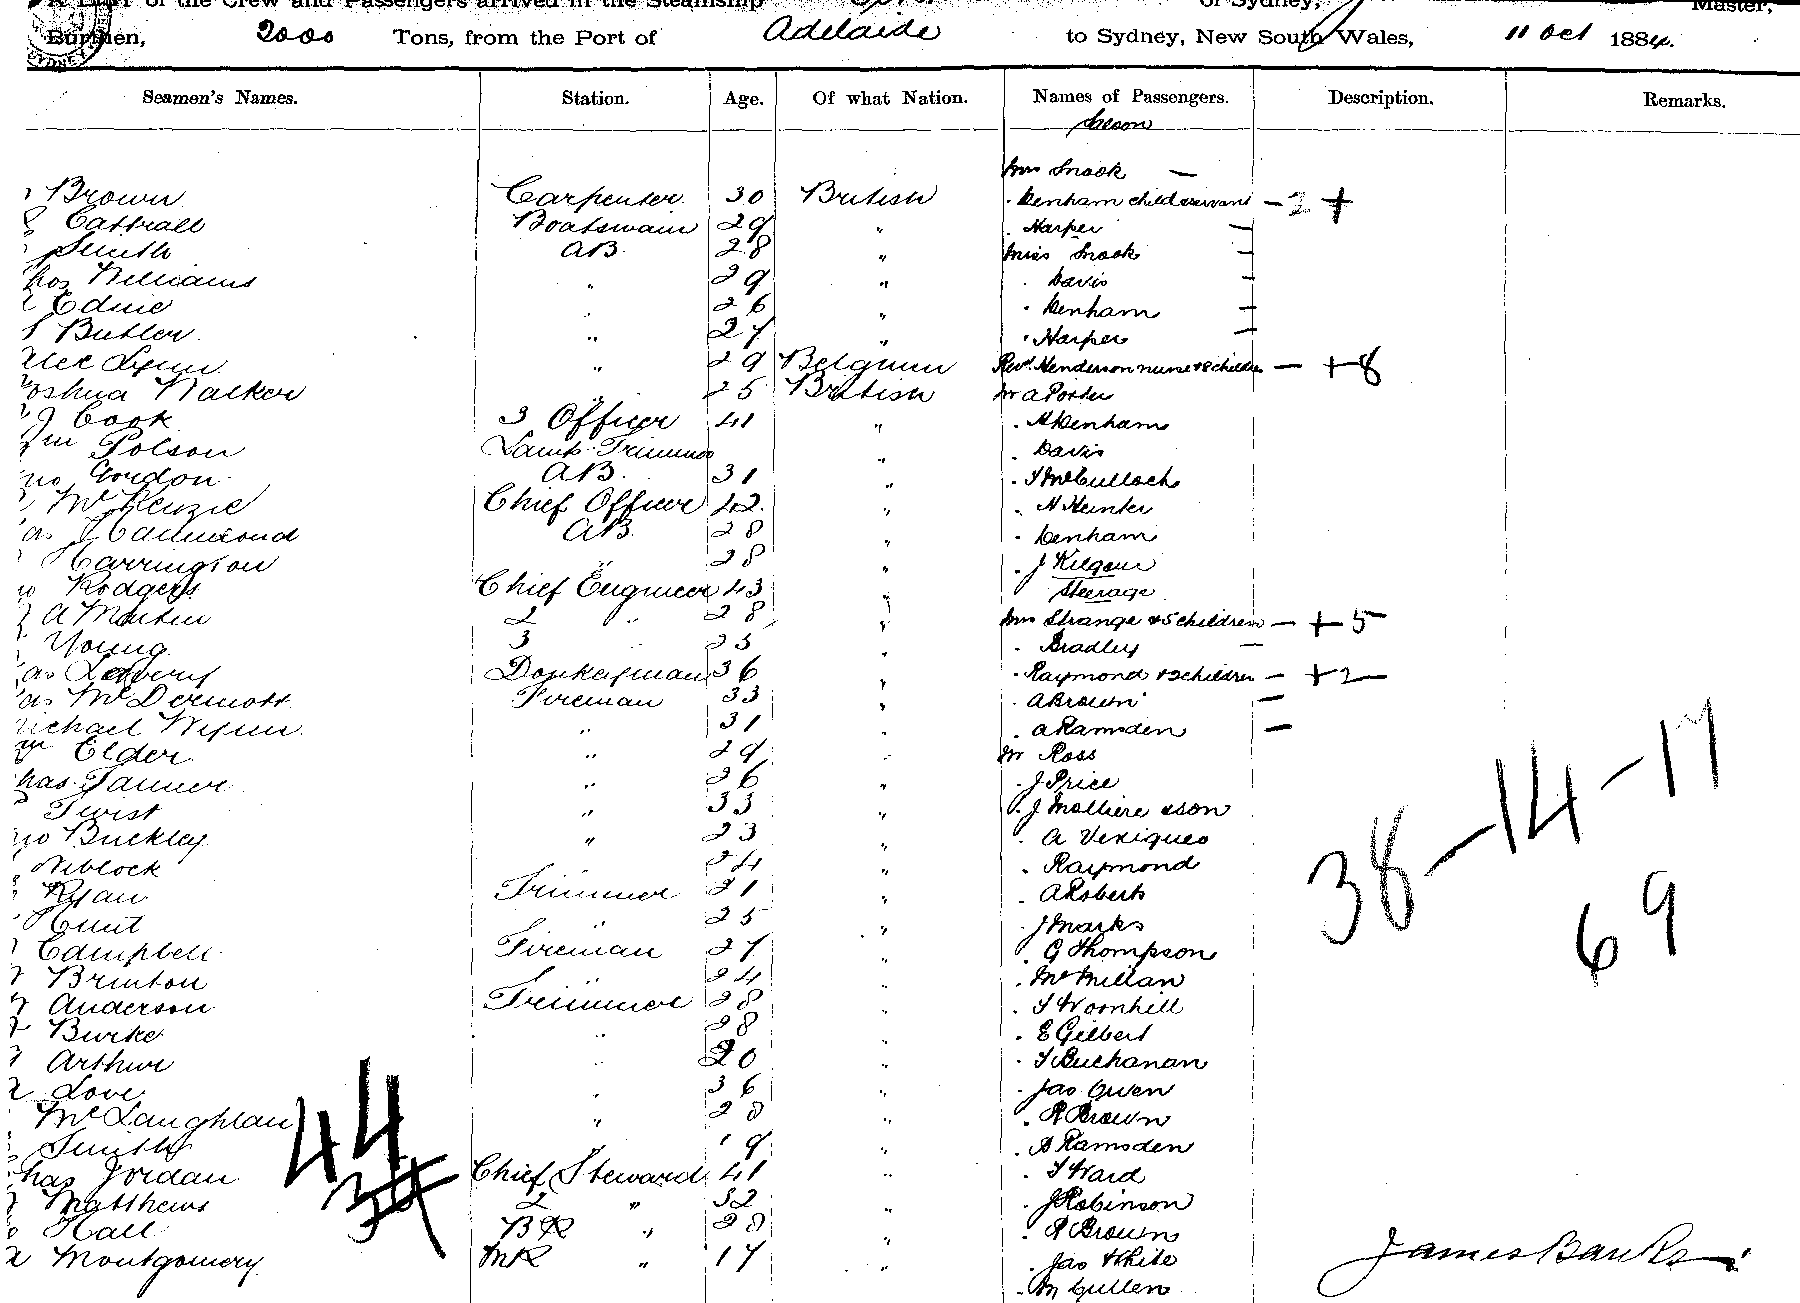 A List of the Crew and Passengers arrived in the Steamship of Sydney, Master,
Burthen, 2000 Tons, from the Port of Adelaide to Sydney, New South Wales, 11 Oct 1884.
Seamen's Names. Station. Age. Of what Nation. Names of Passengers. Description. Remarks.
Saloon
Mrs Snook —
Brown Carpenter 30 British " Denham child & servant — 2 +
Cattrall Boatswain 29 " " Harper —
Smith AB 28 " Miss Snook —
hos Williams " 29 " " Davis —
Edine " 26 " " Denham —
Butler " 27 " " Harper —
Alex Lynn " 29 Belgium Revd Henderson nurse & 8 children — + 8
Joshua Walker " 25 British Mr A Porter
J Cook 3 Officer 41 " " A Denham
Wm Polson Lamp Trimmer " " Davis
no Gordon AB 31 " " J McCulloch
McKenzie Chief Officer 42 " " H Hunter
as Hammond AB 28 " " Denham
Harrington " 28 " " J Kilgour
Rodgers Chief Engineer 43 " Steerage
A Martin 2 " 28 " Mrs Strange & 5 children — + 5
Young 3 " 25 " " Bradley —
as Donkeyman 36 " " Raymond & 2 children — + 2
as McDermott Fireman 33 " " A Brown —
Michael Wynn " 31 " " A Ramsden —
Wm Elder " 29 " Mr Ross
has Tanner " 26 " " J Price
Twist " 33 " " J Molliere & son
no Buckley " 23 " " A
Niblock " 24 " " Raymond
Ryan Trimmer 21 " " A Roberts
Hunt " 25 " " J Marks
Campbell Fireman 27 " " G Thompson
Brinton " 24 " " McMillan
Anderson Trimmer 28 " " J Woonhill
Burke " 28 " " E Gilbert
Arthur " 20 " " J Buchanan
Love " 36 " " Jas Owen
McLaughlan " 28 " " R Brown
Smith " 19 " " A Ramsden
has Jordan Chief Steward 41 " " J Ward
Matthews 2 " 32 " " J Robinson
Hall BR " 28 " " R Brown
Montgomery MR " 17 " " Jas White
" M Cullen
38 - 14 - 17
69
44
James Banks